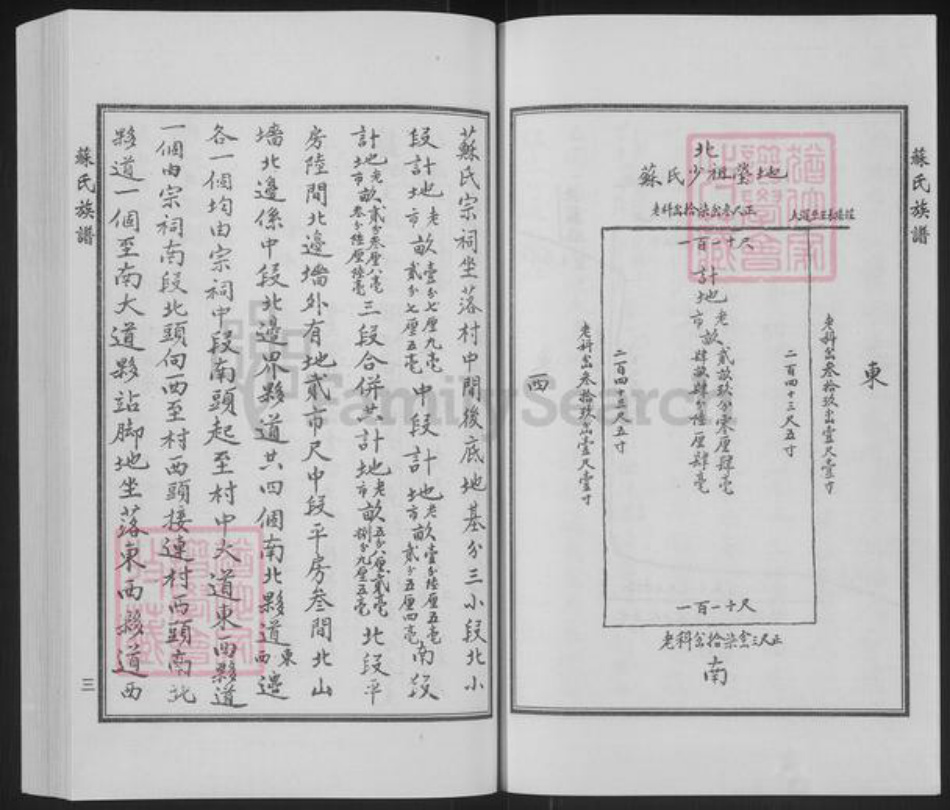 蘇氏族譜
北
蘇氏少祖塋地
老科岔拾柒岔叁尺正
一百一十尺
東
老科岔叁拾玖岔壹尺壹寸
二百四十三尺五寸
計地老市畝貳畝玖分零厘肆毫肆畝肆分陸厘肆毫
二百四十三尺五寸
老科岔叁拾玖岔壹尺壹寸
西
一百一十尺
老科岔拾柒岔三尺正
南
蘇氏宗祠坐落村中間後底地基分三小段北小
段計地老市畝壹分七厘九毫貳分七厘五毫中段計地老市畝壹分陸厘五毫貳分五厘四毫南段
計地老市畝貳分叁厘八毫叁分陸厘陸毫三段合併共計地老市畝五分八厘貳毫捌分九厘五毫北段平
房陸間北邊墻外有地貳市尺中段平房叁間北山
墻北邊係中段北邊界夥道共四個南北夥道東西邊
各一個均由宗祠中段南頭起至村中大道東西夥道
一個由宗祠南段北頭向西至村西頭接連村西頭南北
夥道一個至南大道夥站脚地坐落東西夥道西
蘇氏族譜
三
FamilySearch